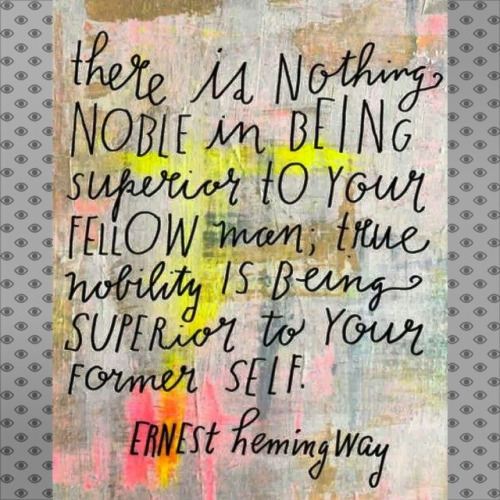 there is Nothing
NOBLE in BEING
superior tO YOur
FELLOW man; true
nobility IS Being
SUPERior to YOur
Former SELF.
ERNESt hemingWay